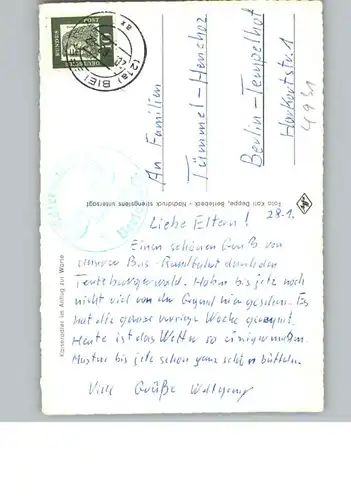 DEUTSCHE
BUNDES
POST
10
(21a) BIE
An Familien
Tümmel-Henchoz
Berlin-Tempelhof
Harkortstr. 1
Foto Karl Deppe, Berlebeck - Nachdruck strengstens untersagt
Kaiseradler im Anflug zur Warte
28.1.
Liebe Eltern!
Einen schönen Gruß von
unserer Bus-Rundfahrt durch den
Teutoburgerwald. Haben bis jetz noch
nicht viel von der Gegend hier gesehen. Es
hat die ganze vorige Woche geregnet.
Heute ist das Wetter so einigermaßen.
Mußten bis jetz schon ganz schön büffeln.
Viele Grüße Wolfgang